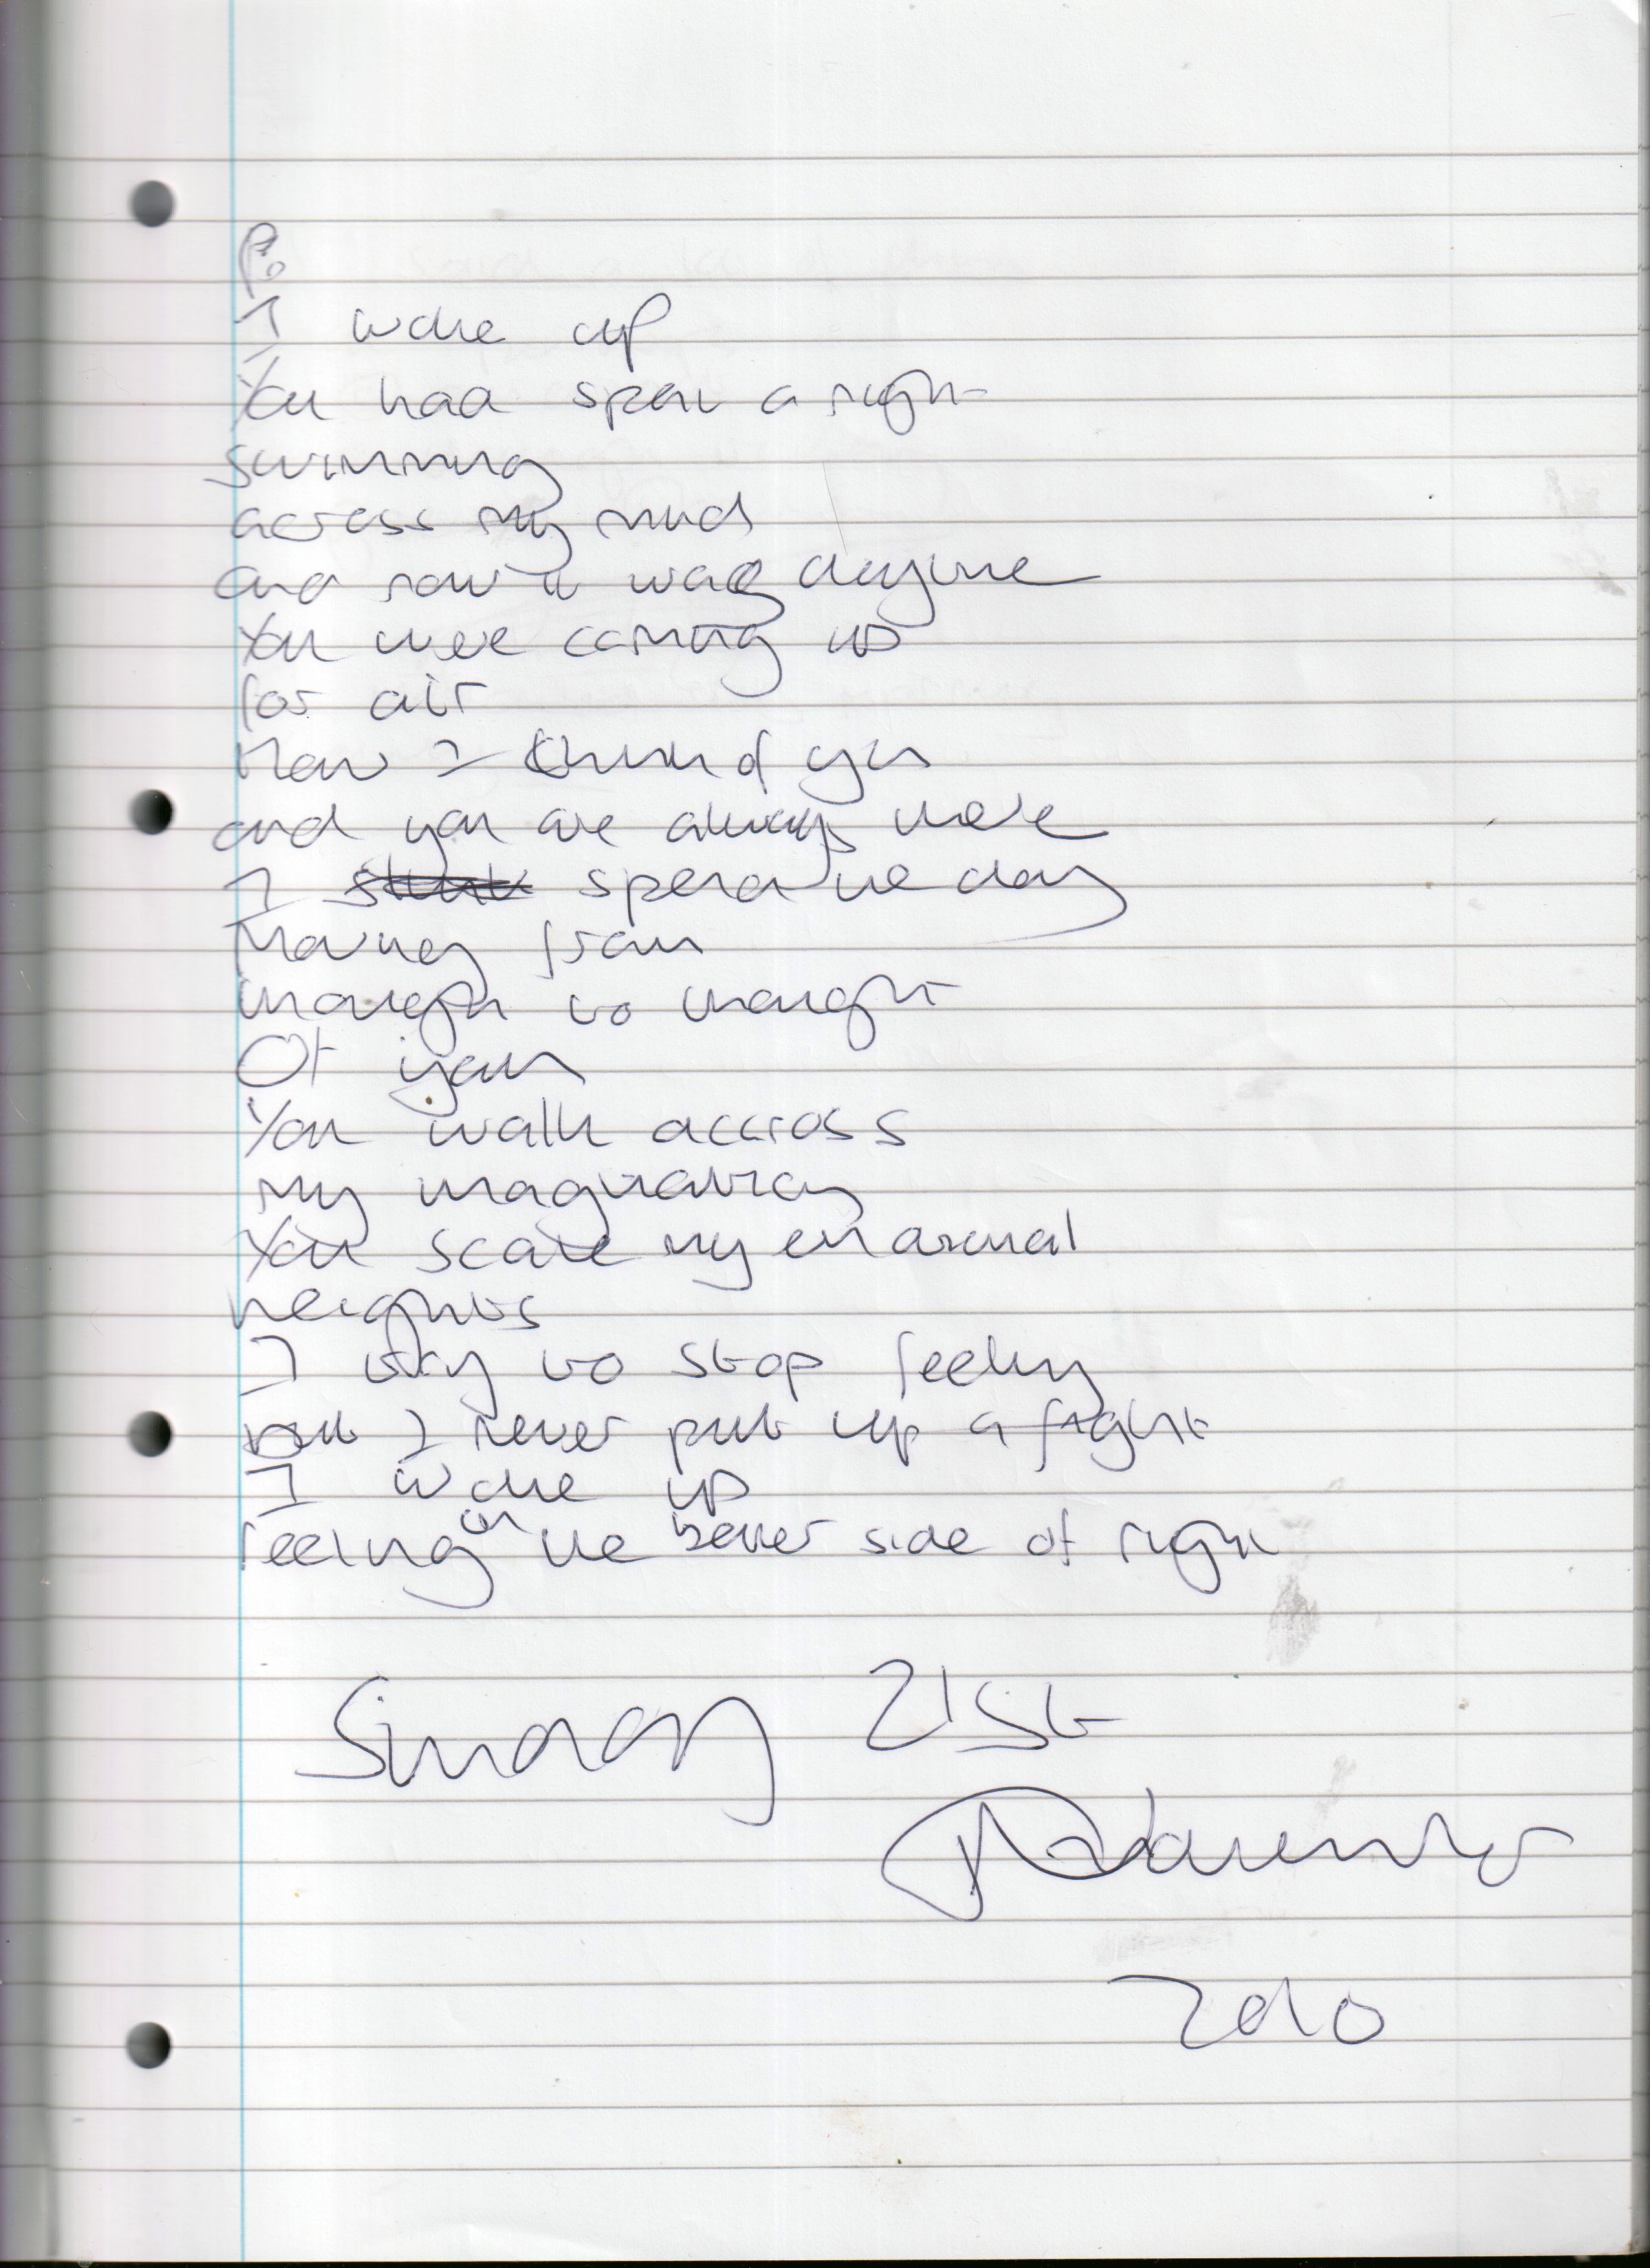 I woke up
You had spent a night
swimming
across my mind
and now it was daytime
You were coming up
for air
How I think of you
and you are always there
I spend the day
Moving from
thought to thought
Of you
You walk accross
my imagination
You scale my emotional
heights
I try to stop feeling
but I never put up a fight
I woke up
feeling on the better side of right
Sunday 21st
November
2010